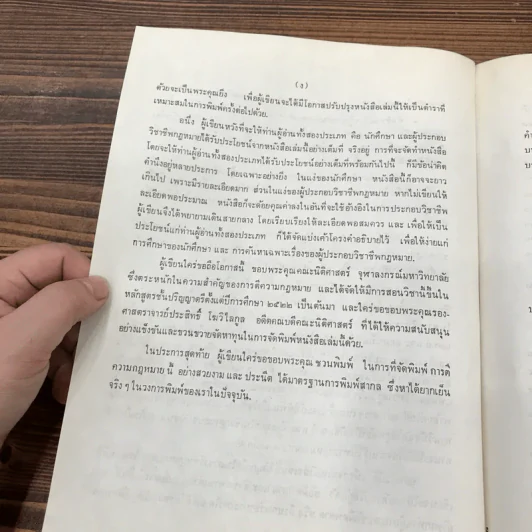 (ง)
ด้วยจะเป็นพระคุณยิ่ง เพื่อผู้เขียนจะได้มีโอกาสปรับปรุงหนังสือเล่มนี้ให้เป็นตำราที่
เหมาะสมในการพิมพ์ครั้งต่อไปด้วย.
อนึ่ง ผู้เขียนหวังที่จะให้ท่านผู้อ่านทั้งสองประเภท คือ นักศึกษา และผู้ประกอบ
วิชาชีพกฎหมายได้รับประโยชน์จากหนังสือเล่มนี้อย่างเต็มที่ จริงอยู่ การที่จะจัดทำหนังสือ
โดยจะให้ท่านผู้อ่านทั้งสองประเภทได้รับประโยชน์อย่างเต็มที่พร้อมกันไปนี้ ก็มีข้อน่าคิด
คำนึงอยู่หลายประการ โดยเฉพาะอย่างยิ่ง ในแง่ของนักศึกษา หนังสือนี้ก็อาจจะยาว
เกินไป เพราะมีรายละเอียดมาก ส่วนในแง่ของผู้ประกอบวิชาชีพกฎหมาย หากไม่เขียนให้
ละเอียดพอประมาณ หนังสือก็จะด้อยคุณค่าลงในอันที่จะใช้อ้างอิงในการประกอบวิชาชีพ
ผู้เขียนจึงได้พยายามเดินสายกลาง โดยเรียบเรียงให้ละเอียดพอสมควร และ เพื่อให้เป็น
ประโยชน์แก่ท่านผู้อ่านทั้งสองประเภท ก็ได้จัดแบ่งเค้าโครงคำอธิบายไว้ เพื่อให้ง่ายแก่
การศึกษาของนักศึกษา และ การค้นหาเฉพาะเรื่องของผู้ประกอบวิชาชีพกฎหมาย.
ผู้เขียนใคร่ขอถือโอกาสนี้ ขอบพระคุณคณะนิติศาสตร์ จุฬาลงกรณ์มหาวิทยาลัย
ซึ่งตระหนักในความสำคัญของการตีความกฎหมาย และได้จัดให้มีการสอนวิชานี้ขึ้นใน
หลักสูตรชั้นปริญญาตรีตั้งแต่ปีการศึกษา ๒๕๒๒ เป็นต้นมา และใคร่ขอขอบพระคุณรอง-
ศาสตราจารย์ประสิทธิ์ โฆวิไลกูล อดีตคณบดีคณะนิติศาสตร์ ที่ได้ให้ความสนับสนุน
อย่างแข็งขันและขวนขวายจัดหาทุนในการจัดพิมพ์หนังสือเล่มนี้ด้วย.
ในประการสุดท้าย ผู้เขียนใคร่ขอขอบพระคุณ ชวนพิมพ์ ในการที่จัดพิมพ์ การตี
ความกฎหมาย นี้ อย่างสวยงาม และ ประณีต ได้มาตรฐานการพิมพ์สากล ซึ่งหาได้ยากเย็น
จริง ๆ ในวงการพิมพ์ของเราในปัจจุบัน.